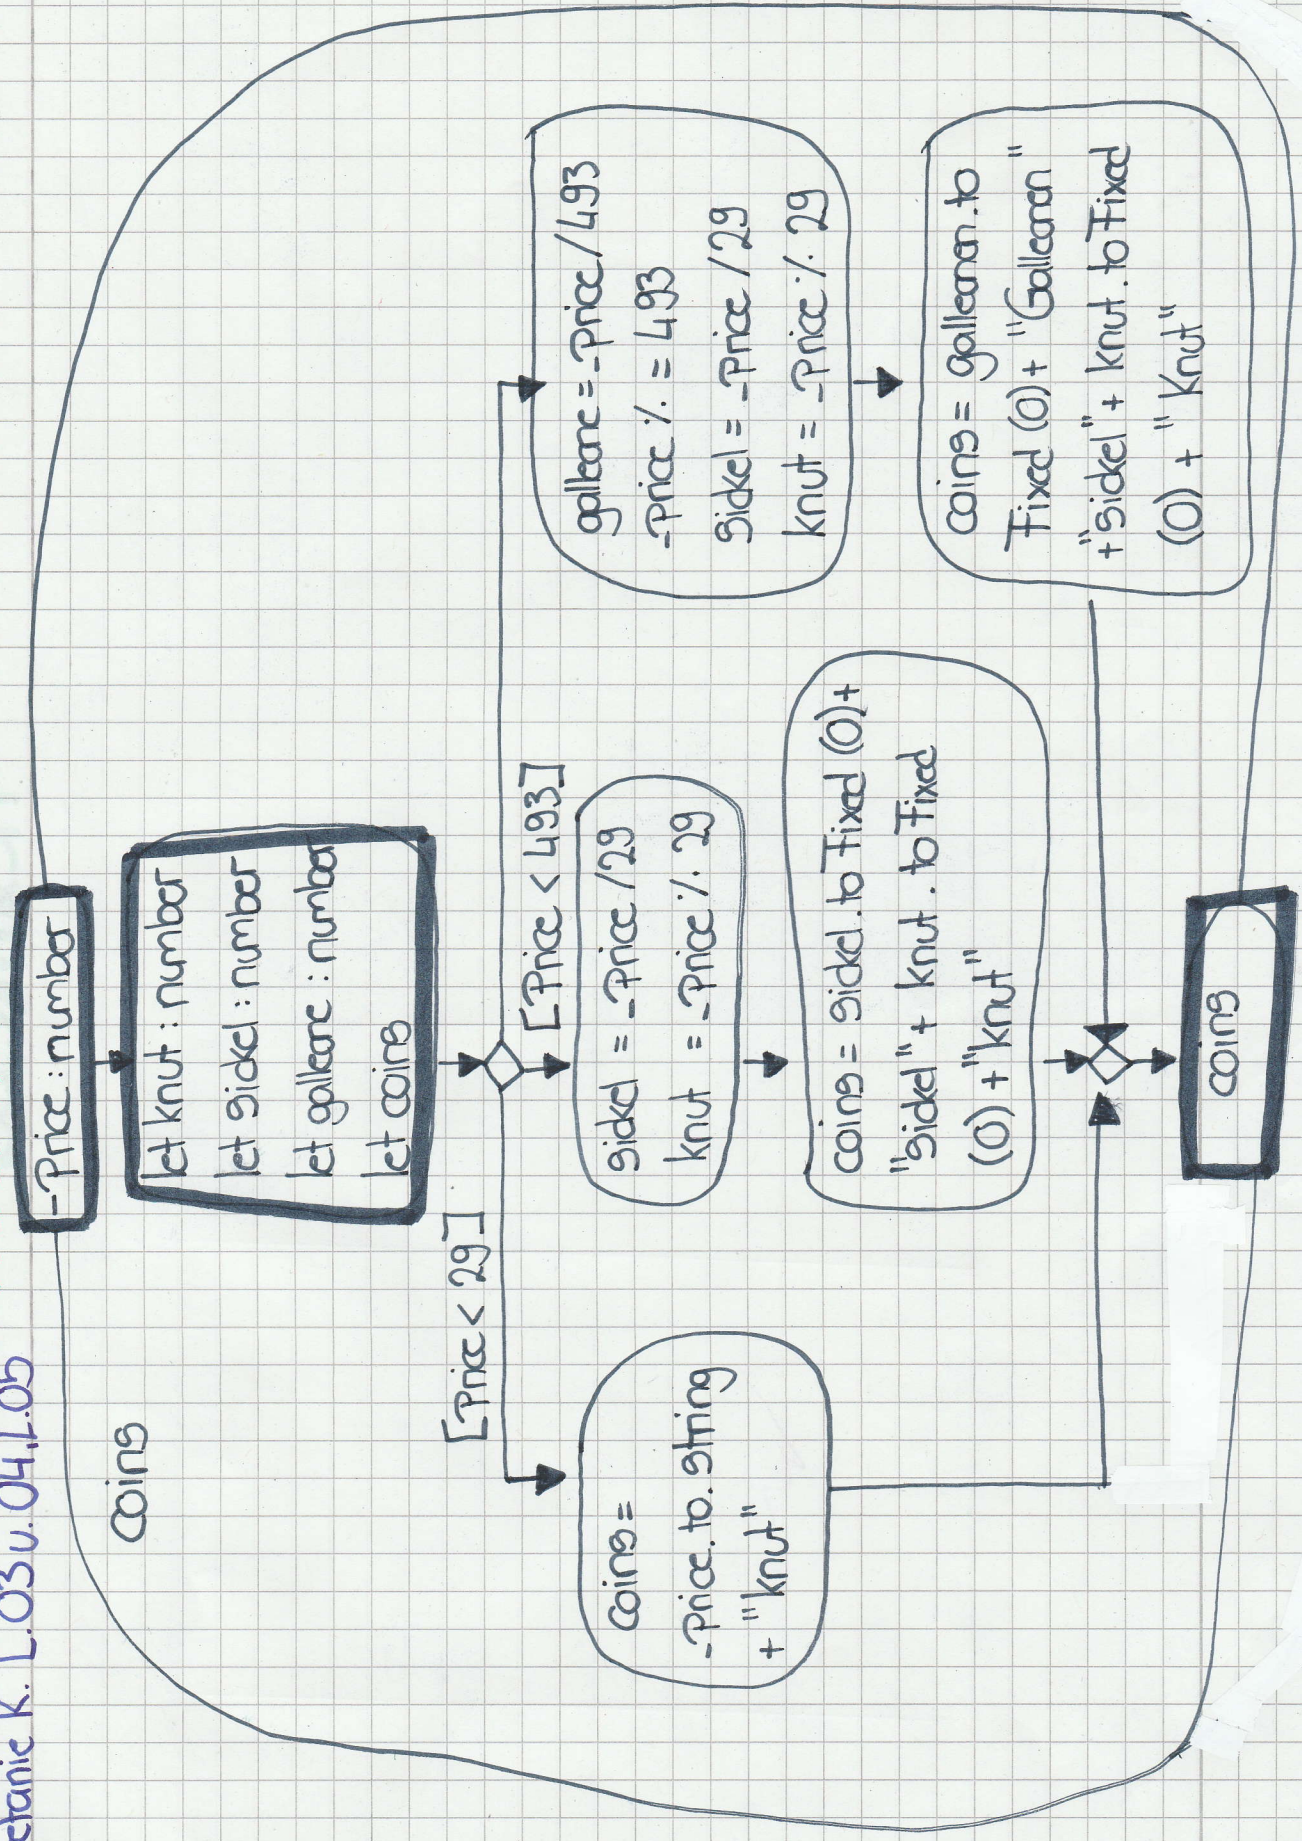 K. L.03 u. 04, L.05
coins
_Price : number
let knut : number
let sickel : number
let galleone : number
let coins
[Price < 29]
[Price < 493]
coins =
_Price.to.string
+ "knut"
sickel = _Price / 29
knut = _Price % 29
coins = sickel.toFixed (0)+
"sickel" + knut.toFixed
(0) + "knut"
galleone = _Price / 493
_Price % = 493
sickel = _Price / 29
knut = _Price % 29
coins = galleonen.to
Fixed (0) + "Galleonen"
+"sickel" + knut.toFixed
(0) + "Knut"
coins